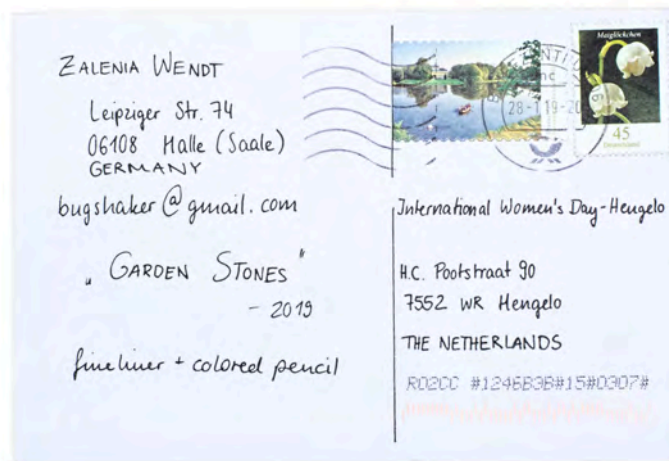 ZALENIA WENDT
Leipziger Str. 74
06108 Halle (Saale)
GERMANY
bugshaker@gmail.com
„GARDEN STONES"
- 2019
fineliner + colored pencil
Maiglöckchen
28-1 19-20
45
Deutschland
International Women's Day-Hengelo
H.C. Pootstraat 90
7552 WR Hengelo
THE NETHERLANDS
R02CC #1246B3B#15#0307#